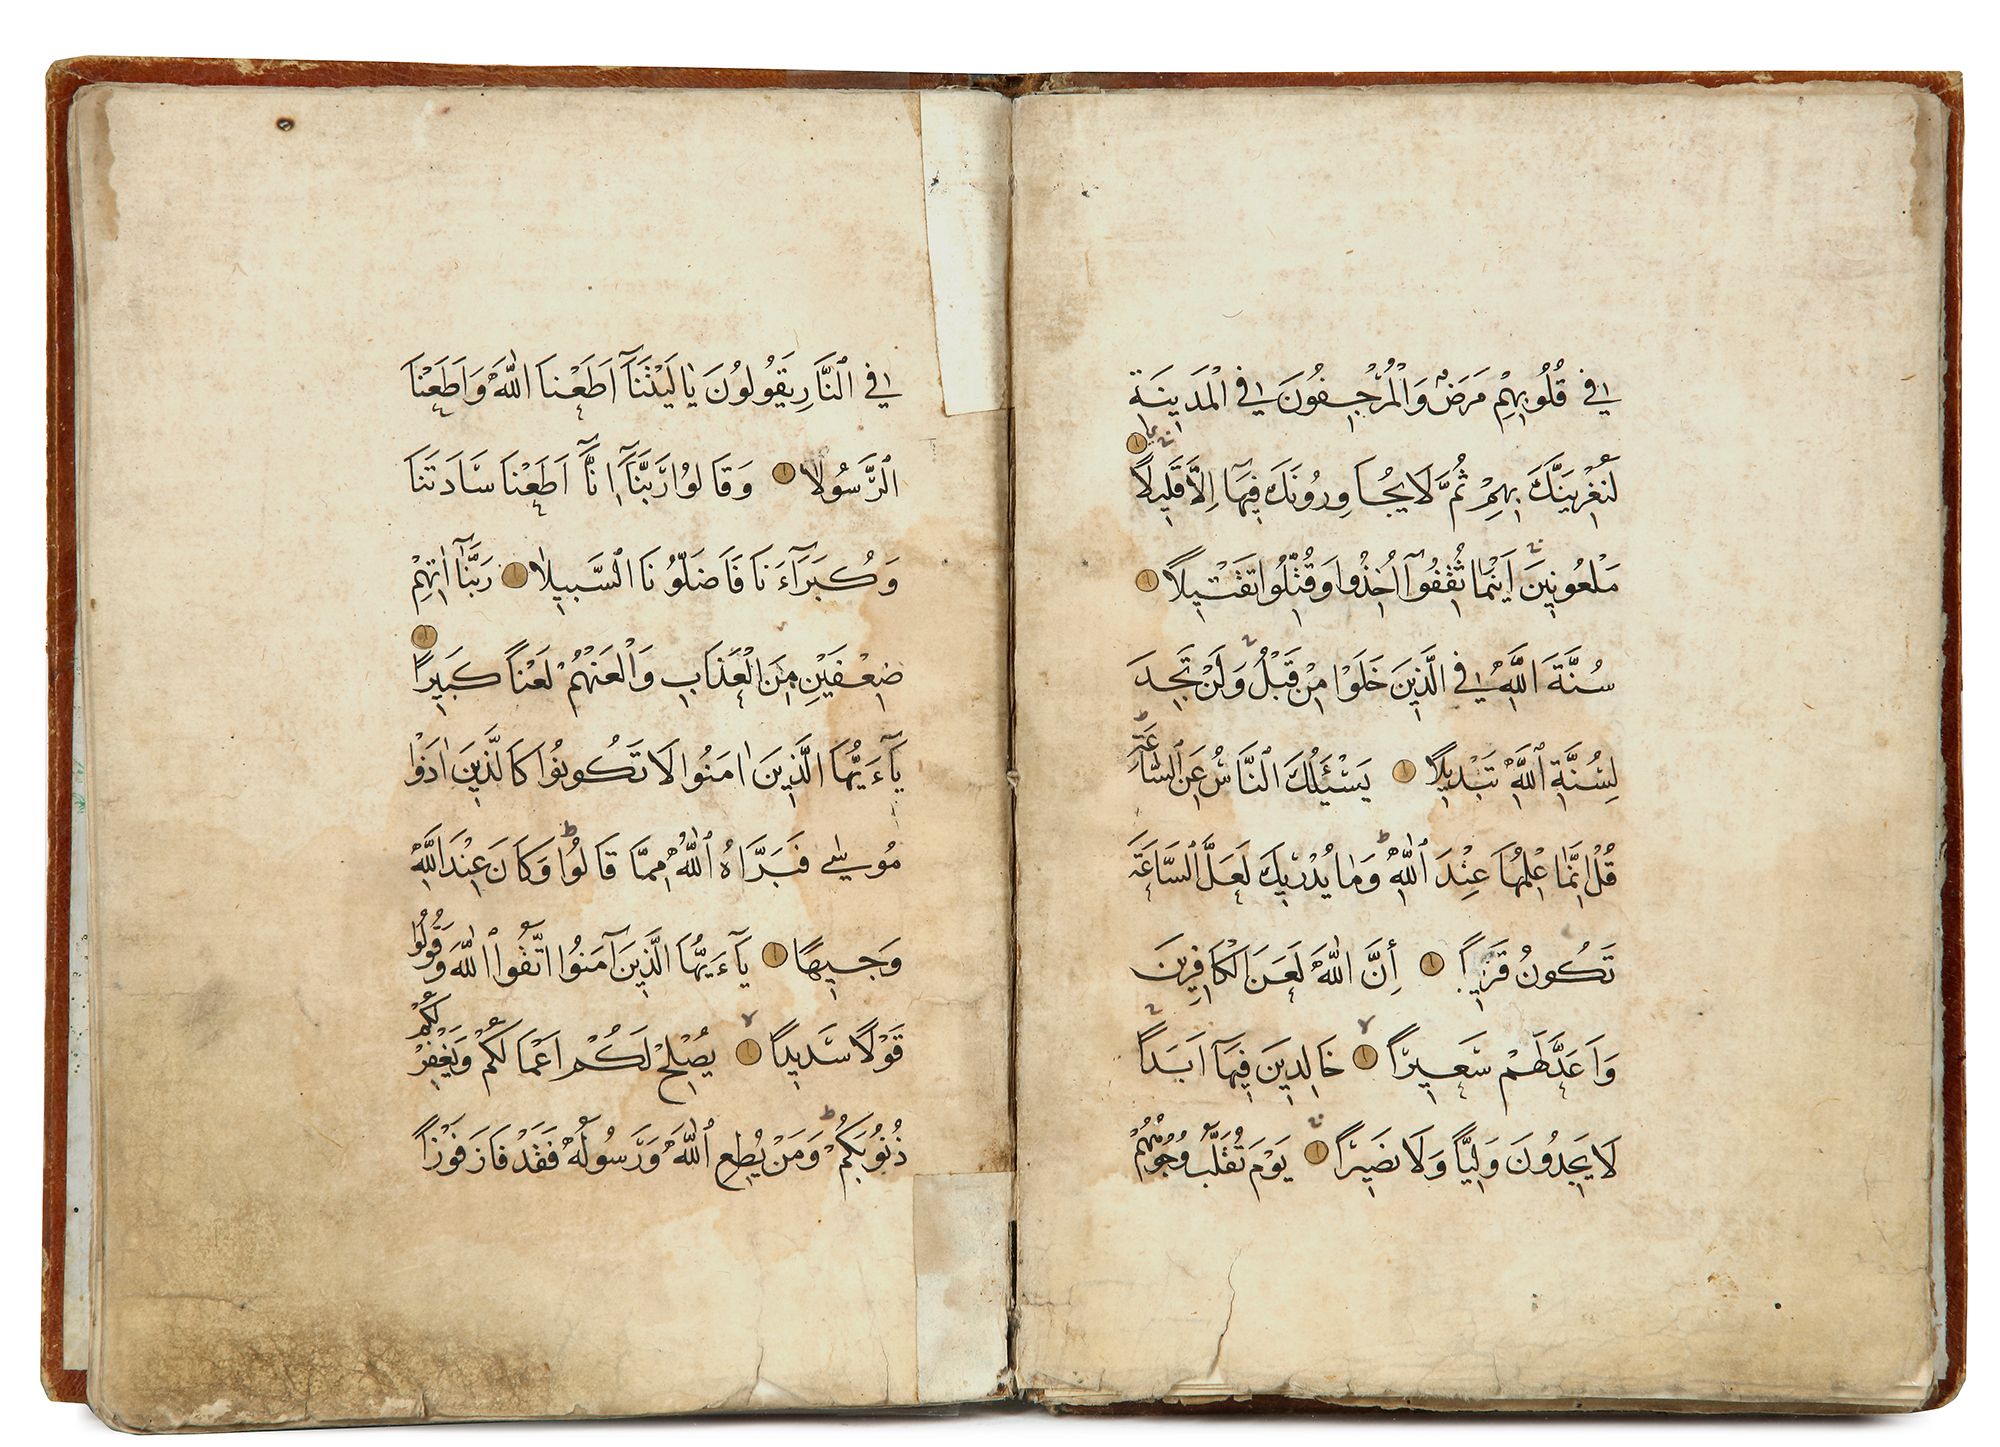 فِي قُلُوبِهِمْ مَرَضٌ وَالْمُرْجِفُونَ فِي الْمَدِينَةِ
لَنُغْرِيَنَّكَ بِهِمْ ثُمَّ لَا يُجَاوِرُونَكَ فِيهَا إِلَّا قَلِيلًا
مَلْعُونِينَ اَيْنَمَا ثُقِفُوٓا اُخِذُوا وَقُتِّلُوا تَقْتِيلًا
سُنَّةَ اللَّهِ فِي الَّذِينَ خَلَوْا مِنْ قَبْلُ وَلَنْ تَجِدَ
لِسُنَّةِ اللَّهِ تَبْدِيلًا يَسْـَٔلُكَ النَّاسُ عَنِ السَّاعَةِ
قُلْ اِنَّمَا عِلْمُهَا عِنْدَ اللَّهِ وَمَا يُدْرِيكَ لَعَلَّ السَّاعَةَ
تَكُونُ قَرِيبًا أِنَّ اللَّهَ لَعَنَ الْكَافِرِينَ
وَاَعَدَّ لَهُمْ سَعِيرًا خَالِدِينَ فِيهَآ اَبَدًا
لَا يَجِدُونَ وَلِيًّا وَلَا نَصِيرًا يَوْمَ تُقَلَّبُ وُجُوهُهُمْ
فِي النَّارِ يَقُولُونَ يَا لَيْتَنَآ اَطَعْنَا اللَّهَ وَاَطَعْنَا
الرَّسُولَا وَقَالُوا رَبَّنَآ اِنَّآ اَطَعْنَا سَادَتَنَا
وَكُبَرَآءَنَا فَاَضَلُّونَا السَّبِيلَا رَبَّنَآ اٰتِهِمْ
ضِعْفَيْنِ مِنَ الْعَذَابِ وَالْعَنْهُمْ لَعْنًا كَبِيرًا
يَآءَيُّهَا الَّذِينَ اٰمَنُوا لَا تَكُونُوا كَالَّذِينَ اٰذَوْا
مُوسٰى فَبَرَّاَهُ اللَّهُ مِمَّا قَالُوا وَكَانَ عِنْدَ اللَّهِ
وَجِيهًا يَآءَيُّهَا الَّذِينَ آمَنُوا اتَّقُوا اللَّهَ وَقُولُوا
قَوْلًا سَدِيدًا يُصْلِحْ لَكُمْ اَعْمَالَكُمْ وَيَغْفِرْ لَكُمْ
ذُنُوبَكُمْ وَمَنْ يُطِعِ اللَّهَ وَرَسُولَهُ فَقَدْ فَازَ فَوْزًا